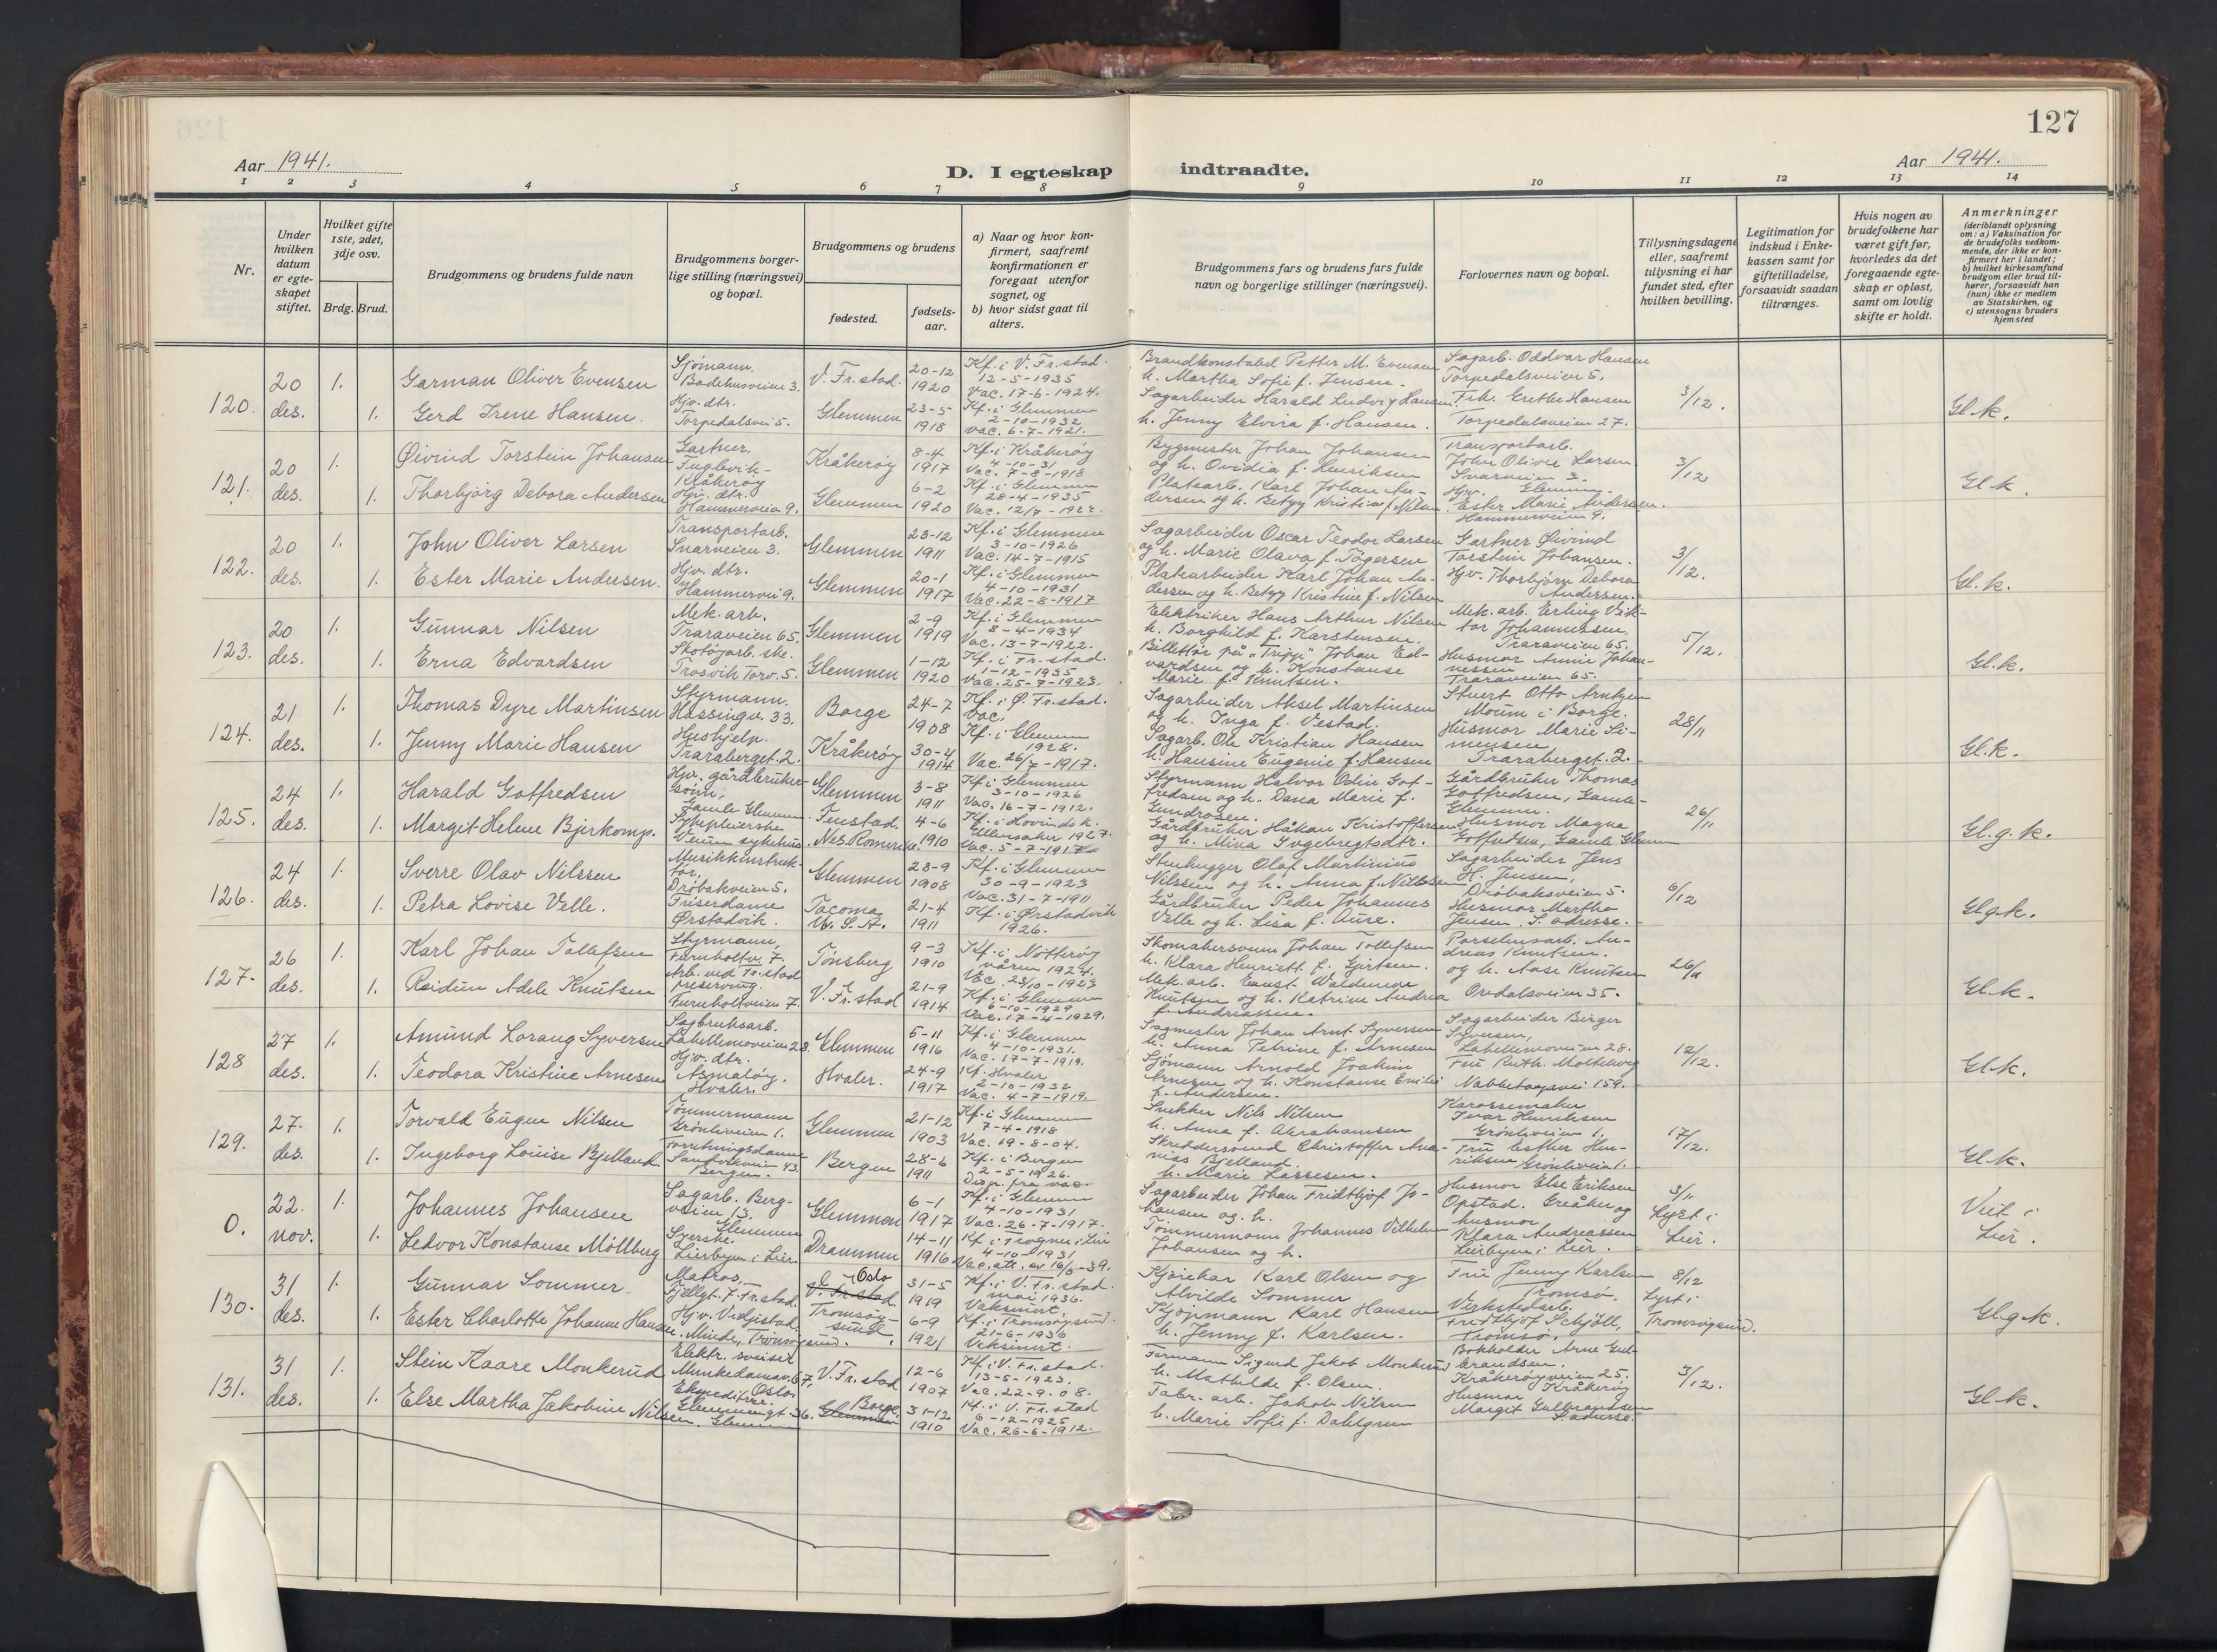 127
Aar 1941.
D. I egteskap indtraadte.
Aar 1941.
1 2 3 4 5 6 7 8 9 10 11 12 13 14
Nr.
Under hvilken datum er egteskapet stiftet.
Hvilket gifte 1ste, 2det, 3dje osv.
Brdg. Brud.
Brudgommens og brudens fulde navn
Brudgommens borgerlige stilling (næringsvei) og bopæl.
Brudgommens og brudens
fødested.
fødselsaar.
a) Naar og hvor konfirmert, saafremt konfirmationen er foregaat utenfor sognet, og
b) hvor sidst gaat til alters.
Brudgommens fars og brudens fars fulde navn og borgerlige stillinger (næringsvei).
Forlovernes navn og bopæl.
Tillysningsdagene eller, saafremt tillysning ei har fundet sted, efter hvilken bevilling.
Legitimation for indskud i Enkekassen samt for giftetilladelse, forsaavidt saadan tiltrænges.
Hvis nogen av brudefolkene har været gift før, hvorledes da det foregaaende egteskap er opløst, samt om lovlig skifte er holdt.
Anmerkninger (deriblandt oplysning om: a) Vaksination for de brudefolks vedkommende, der ikke er konfirmert her i landet; b) hvilket kirkesamfund brudgom eller brud tilhører, forsaavidt han (hun) ikke er medlem av Statskirken, og c) utensogns bruders hjemsted
120. 20 des.
1. Garman Oliver Evensen
Sjømann. Badehusveien 3.
V. Fr.stad.
20-12 1920
Kf. i V. Fr.stad. 12-5-1935
Vac. 17-6-1924.
Brandkonstabel Petter M. Evensen
h. Martha Sofie f. Jensen.
Sagarb. Oddvar Hansen
Torpedalsveien 5.
1. Gerd Irene Hansen.
Hjv. dtr. Torpedalsvei 5.
Glemmen
23-5 1918
Kf. i Glemmen 2-10-1932
Vac. 6-7-1921.
Sagarbeider Harald Ludvig Hansen
h. Jenny Elvira f. Hansen.
Frk. Grethe Hansen
Torpedalsveien 27.
3/12.
Gl.k.
121. 20 des.
1. Øivind Torstein Johansen
Gartner. Fuglevik- Kråkerøy
Kråkerøy
8-4 1917
Kf. i Kråkerøy 4-10-31
Vac. 7-8-1918
Bygmester Johan Johansen
og h. Ovidia f. Henriksen
Transportarb.
John Oliver Larsen
Snarveien 3.
1. Thorbjörg Debora Andersen
Hjv. dtr. Hammerveien 9.
Glemmen
6-2 1920
Kf. i Glemmen 28-4-1935
Vac. 12/7-1922.
Platearb. Karl Johan Andersen og h. Betzy Kristine f. Nilsen
Hjv. Ester Marie Andersen.
Hammerveien 9.
3/12
Gl.k.
122. 20 des.
1. John Oliver Larsen
Transportarb. Snarveien 3.
Glemmen
23-12 1911
Kf. i Glemmen 3-10-1926
Vac. 14-7-1915
Sagarbeider Oscar Teodor Larsen
og h. Marie Olava f. Tøgersen
Gartner Øivind
Torstein Johansen.
1. Ester Marie Andersen.
Hjv. dtr. Hammervei 9.
Glemmen
20-1 1917
Kf. i Glemmen 4-10-1931
Vac. 22-8-1917
Platearbeider Karl Johan Andersen og h. Betzy Kristine f. Nilsen
Hjv. Thorbjørg Debora
Andersen.
3/12.
Gl.k.
123. 20 des.
1. Gunnar Nilsen
Mek. arb. Traraveien 65.
Glemmen
2-9 1919
Kf. i Glemmen 8-4-1934
Vac. 13-7-1922.
Elektriker Hans Arthur Nilsen
h. Borghild f. Karstensen.
Mek. arb. Erling Viktor Johannessen,
Traraveien 65.
1. Erna Edvardsen
Skotøjarb. ske. Trosvik Torv. 5.
Glemmen
1-12 1920
Kf. i Fr.stad. 1-12-1935
Vac. 25-7-1923.
Billettør på "Trygg" Johan Edvardsen og h. Konstanse
Marie f. Knutsen.
Husmor Annie Johannessen
Traraveien 65.
5/12.
Gl.k.
124. 21 des.
1. Thomas Dyre Martinsen
Styrmann. Hassingv. 33.
Borge
24-7 1908
Kf. i Ø. Fr.stad.
Vac.
Sagarbeider Aksel Martinsen
og h. Inga f. Vestad.
Stuert Otto Arntzen
Moum i Borge.
1. Jenny Marie Hansen
Hushjelp. Traraberget. 2.
Kråkerøy
30-4 1914
Kf. i Glemmen 1928.
Vac. 26/7-1917.
Sagarb. Ole Kristian Hansen
h. Hansine Eugenie f. Hansen
Husmor Marie Simensen
Traraberget. 2.
28/11
Gl.k.
125. 24 des.
1. Harald Gotfredsen
Hjv. gårdbrukersønn, Gamle Glemmen
Glemmen
3-8 1911
Kf. i Glemmen 3-10-1926
Vac. 16-7-1912.
Styrmann Halvor Odin Gotfredsen og h. Dana Marie f.
Gundrosen.
Gårdbruker Thomas
Gotfredsen, Gamle-
Glemmen.
1. Margit Helene Bjerkomp.
Sykepleierske Veum sykehus.
Fenstad. Nes Romerike.
4-6 1910
Kf. i Hovind k. Ullensaker 1927.
Vac. 5-7-1917
Gårdbruker Håkan Kristoffersen
og h. Mina Ingebregtsdtr.
Husmor Magna
Gotfredsen, Gamle Glemmen
26/11
Gl.g.k.
126. 24 des.
1. Sverre Olav Nilssen
Musikkinstruktør, Drøbakveien 5.
Glemmen
28-9 1908
Kf. i Glemmen 30-9-1923
Vac. 31-7-1911
Stenhugger Olaf Martinius
Nilssen og h. Anna f. Nilssen
Sagarbeider Jens
H. Jensen,
Drøbaksveien 5.
1. Petra Lovise Velle.
Friserdame Ørstadvik.
Tacoma U. S. A.
21-4 1911
Kf. i Ørstadvik 1926.
Gårdbruker Peder Johannes
Velle og h. Lisa f. Aure.
Husmor Martha
Jensen. S. adresse.
6/12
Gl.g.k.
127. 26 des.
1. Karl Johan Tollefsen
Styrmann, Furuholtv. 7.
Tønsberg
9-3 1910
Kf. i Nøtterøy våren 1924.
Vac. 23/10-1923
Skomakersvenn Johan Tollefsen
h. Klara Henriett. f. Gjertsen.
Porselensarb. Andreas Knutsen.
1. Reidun Adele Knutsen
Arb. ved Fr.stad preserving. Furuholtveien 7
V. Fr.stad
21-9 1914
Kf. i Glemmen 6-10-1929
Vac. 17-4-1929.
Mek. arb. Ernst Waldemar
Knutsen og h. Katrine Andrea
f. Andreassen.
og h. Aase Knutsen
Oredalsveien 35.
26/11
Gl.k.
128 27 des.
1. Amund Lorang Syversen
Sagbruksarb. Labellemoveien 28.
Glemmen
5-11 1916
Kf. i Glemmen 4-10-1931.
Vac. 17-7-1919.
Sagmester Johan Arnt Syversen
h. Anna Petrine f. Arnesen
Sagarbeider Birger
Syversen,
Labellemoveien 28.
1. Teodora Kristine Arnesen
Hjv. dtr. Asmaløy. Hvaler.
Hvaler.
24-9 1917
Kf. Hvaler 2-10-1932
Vac. 4-7-1919.
Sjømann Arnold Joakim
Arnesen og h. Konstanse Emilie
f. Andersen.
Fru Ruth Moltelweg
Nabbetorpvei 159.
12/12.
Gl.k.
129. 27. des.
1. Torvald Eugen Nilsen
Tømmermann Grønliveien 1.
Glemmen
21-12 1903
Kf. i Glemmen 7-4-1918
Vac. 19-8-04.
Snekker Nils Nilsen
h. Anna f. Abrahamsen
Karossemaker
Ivar Henriksen
Grønliveien 1,
1. Ingeborg Louise Bjelland
Forretningsdame Sandviksveien 43 Bergen.
Bergen
28-6 1911
Kf. i Bergen 2-5-1926.
Disp. fra vac.
Skreddersvend Christoffer Ananias Bjelland.
h. Marie Lassesen.
Fru Esther Henriksen Grønliveien 1.
17/12.
Gl.k.
0. 22. nov.
1. Johannes Johansen
Sagarb. Bergveien 13. Glemmen
Glemmen
6-1 1917
Kf. i Glemmen 4-10-1931
Vac. 26-7-1917.
Sagarbeider Johan Fridthjof Johansen og h.
Husmor Else Eriksen
Opstad. Greåker og
1. Ledvor Konstanse Möllberg
Syerske. Lierbyen i Lier.
Drammen
14-11 1916
Kf. i Frogner i Lier 4-10-1931
Vac. att. av 16/5-39.
Tømmermann Johannes Vilhelm
Johansen og h.
husmor
Klara Andreassen
Lierbyen i Lier.
3/11 Lyst i Lier.
Viet i Lier.
130. 31 des.
1. Gunnar Sommer
Matros, Fjellgt. 7. Fr.stad.
Oslo
V. Fr.stad.
31-5 1919
Kf. i V. Fr.stad. mai 1936.
Vaksinert.
Kjørekar Karl Olsen og
Alvilde Sommer
Fru Jenny Karlsen
Tromsø.
1. Ester Charlotte Johanne Hansen.
Tromsøysund
6-9 1921
Kf. i Tromsøysund. 21-6-1936
Vaksinert.
Kjøpmann Karl Hansen
h. Jenny f. Karlsen.
Verkstedarb.
Fridthjof Schjöll,
Tromsø.
8/12 Lyst i Tromsøysund.
Gl.g.k.
131. 31 des.
1. Stein Kaare Monkerud
Elektr. sveiser Munkedamsv. 67, Oslo.
V. Fr.stad
12-6 1907
Kf. i V. Fr.stad. 13-5-1923.
Vac. 22-9-08.
Formann Sigurd Jakob Monkerud
h. Mathilde f. Olsen.
Bokholder Arne Gulbrandsen.
Kråkerøyveien 25.
Kråkerøy
1. Else Martha Jakobine Nilsen.
Ekspeditrise. Glemmengt. 36. Glemmen
Borge.
Glemmen
31-12 1910
Kf. i V. Fr.stad 6-12-1925
Vac. 26-6-1912.
Fabr. arb. Jakob Nilsen
h. Marie Sofie f. Dahlgren
Husmor
Margit Gulbrandsen
S. adresse.
3/12.
Gl.k.